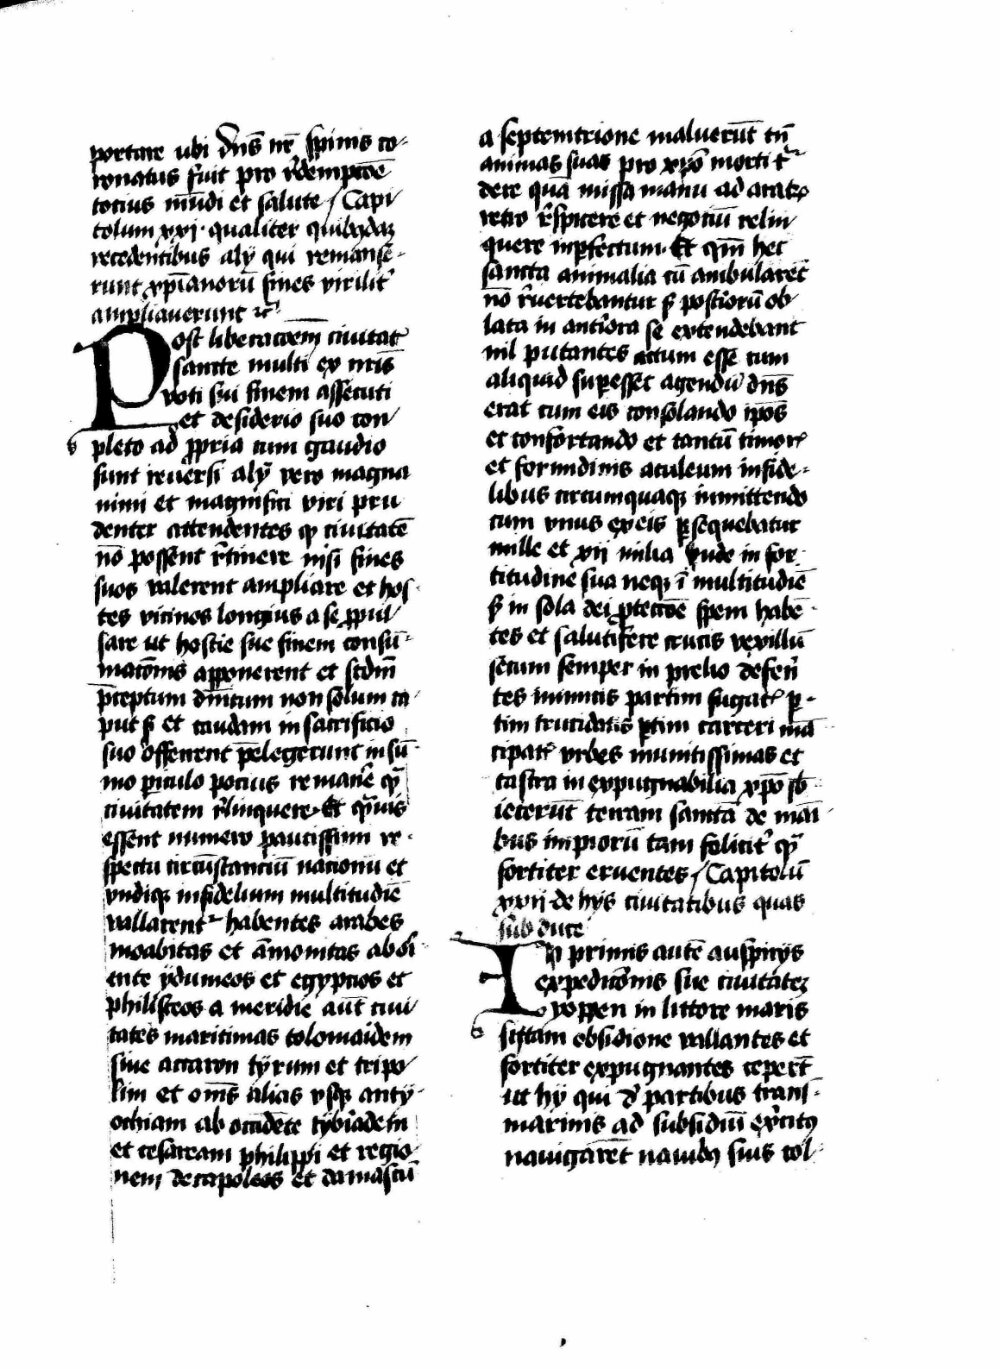 portare ubi dn̄s nr̄ spinis co-
ronatus fuit pro r̄dempcōe
tocius mūdi et salute / Capi
tolum xxj. qualiter quibꝰdaꝫ
recedentibus alij qui remanse-
runt xp̄ianorū fines virilit᷑
ampliaverunt ꝛc̄
Post liberacōem civitat᷑
sancte multi ex nr̄is
voti sui finem assecuti
et desiderio suo con
pleto ad ꝓpria cum gaudio
sunt reversi alij vero magna
nimi et magnifici viri pru
denter attendentes ꝙ civitatē
nō possent r̄tinere nisi fines
suos valerent ampliare et hos
tes vicinos longius a se ꝓpul
sare ut hostie sue finem consū-
matōnis apponerent et scdm̄
p̄ceptum dn̄icum non solum ca
put sꝫ et caudam in sacrificio
suo offerrent p̄elegerunt in sū
mo ꝑiculo pocius remane᷑ qͣ
civitatem r̄linquere. Et qͣuis
essent numero paucissimi re-
spectu circūstanciū nacionū et
undiqꝫ infidelium multitudīe
vallarent᷑ habentes arabes
moabitas et āmonitas ab ori
ente ydumeos et egypcios et
philisteos a meridie aūt civi
tates maritimas tolomaidem
sive accaron tyrum et tripo
lim et om̄s alias usqꝫ anty-
ochiam ab occidēte tyb̾iadem
et cesaream philippi et regio
nem decapoleos et damascū
a septemtrione maluerūt tn̄
animas suas pro xp̄o morti t᷑-
dere qͣ missa manu ad aratꝝ
retro r̄spicere et negociū relin
quere inꝑfectum. Et qm̄ hec
sancta animalia cū ambularēt
nō r̄vertebantur sꝫ post̾iorū ob
lata in ant̾iora se extendebant
nil putantes actum esse cum
aliquid suꝑesset agendū dn̄s
erat cum eis consolando ip̄os
et confortando et tantū timor᷑
et formidinis aculeum infide-
libus circumquaqꝫ inmittendo
cum unus ex eis ꝑsequebatur
mille et xij milia unde in for
titudine sua neqꝫ ī multitudīe
sꝫ in sola dei ꝓtectōe spem habē
tes et salutifere crucis vexillū
secum semper in prelio defen᷑
tes inimicis partim fugat᷑ ꝑ-
tim trucidatis ꝑtim carceri mā
cipat᷑ urbes munitissimas et
castra inexpugnabilia xp̄o sb̄
iecerūt terram sanctā de mai
bus impiorū tam felicit᷑ qͣ
fortiter eruentes / Capitolū
xxij. de hijs civitatibus quas
sub duce
In primis autē auspicijs
expedicōnis sue civitateꝫ
yoppen in littore maris
sistam obsidione vallantes et
fortiter expugnantes ceper̄t
ut hij qui de partibus trans-
marinis ad subsidiū ex̾citꝰ
navigarēt navibꝫ suis col-